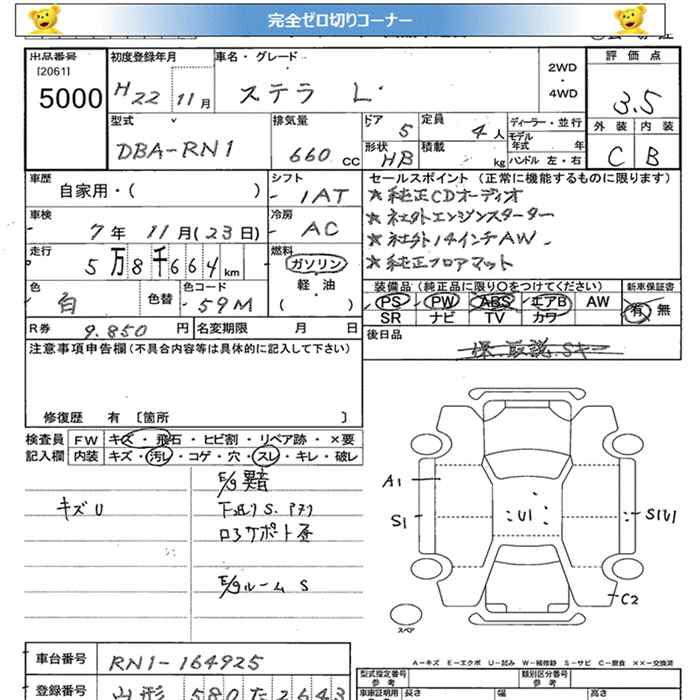 完全ゼロ切りコーナー
出品番号 初度登録年月 車名・グレード 2WD・4WD 評価点
[2061]
5000 H22 11月 ステラ L 3.5
型式 排気量 ドア 定員 ディーラー・並行 外装 内装
DBA-RN1 660cc 5 4人 モデル年式 年 C B
形状 HB 積載 kg ハンドル 左・右
車歴 シフト セールスポイント (正常に機能するものに限ります)
自家用・( ) IAT ★純正CDオーディオ
車検 冷房 ★社外エンジンスターター
7年 11月(23日) AC ★社外14インチAW
走行 燃料 ★純正フロアマット
5万8千664km ガソリン
軽・油
( )
色 色替 色コード 装備品 (純正品に限り○をつけてください) 新車保証書
白 59M PS PW ABS エアB AW 有 無
SR ナビ TV カワ
R券 9.850円 名変期限 月 日 後日品
注意事項申告欄(不具合内容等は具体的に記入して下さい) 保.取説.Sキー
修復歴 有 [箇所 ]
検査員 FW キズ・飛石・ヒビ割・リペア跡・×要
記入欄 内装 キズ・汚レ・コゲ・穴・スレ・キレ・破レ
E/g異音
キズU 下廻りS.
E/gルームS
A1
S1 U1 S1U1
C2
スペア
A-キズ E-エクボ U-凹み W-補修跡 S-サビ C-腐食 ××-交換済
車台番号 RN1-164925 型式指定番号 参考 類別区分番号 参考
登録番号 山形 580 た 2643 車庫証明用 参考 長さ 幅 高さ